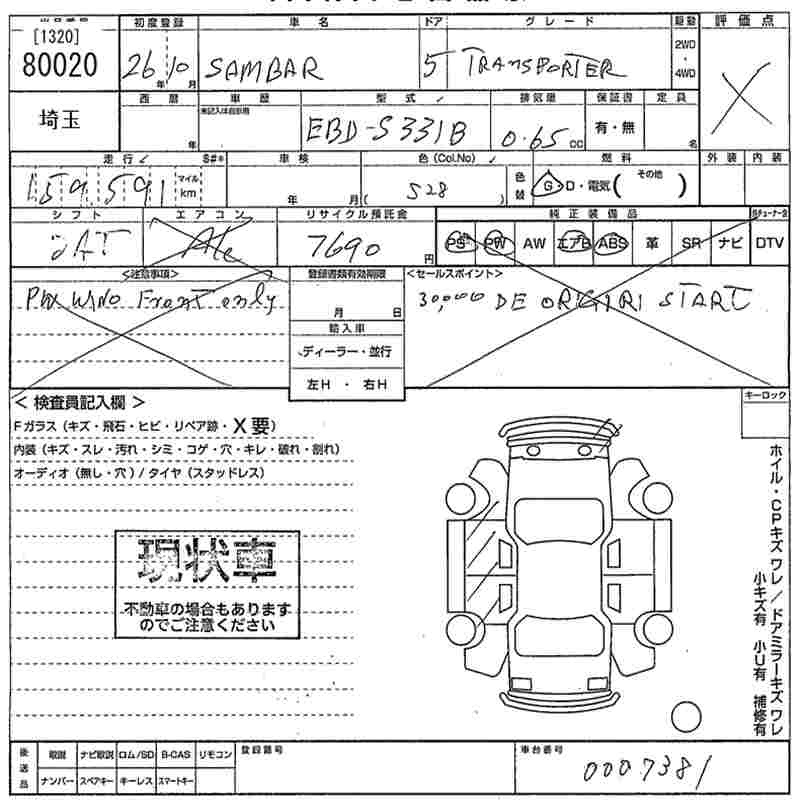 出品番号 初度登録 車名 ドア グレード 駆動 評価点
[1320]
80020 26年10月 SAMBAR 5 TRANSPORTER 2WD・4WD X
埼玉
西暦 車歴 型式 排気量 保証書 定員
年 未記入は自家用 EBD-S331B 0.65cc 有・無 名
走行 S#* 車検 色(Col.No) 燃料 外装 内装
159,591 マイル km 年 月 ( S28 ) 色替 G・D・電気( その他 )
シフト エアコン リサイクル預託金 純正装備品 地デジチューナー含
DAT A/C 7690円 PS PW AW エアB ABS 革 SR ナビ DTV
<注意事項> 登録書類有効期限 <セールスポイント>
PW WINO Front only 30,000 DE ORIGIRI START
月 日
輸入車
ディーラー・並行
左H ・ 右H
< 検査員記入欄 > キーロック
Fガラス(キズ・飛石・ヒビ・リペア跡・X要)
内装(キズ・スレ・汚れ・シミ・コゲ・穴・キレ・破れ・割れ)
オーディオ(無し・穴)/タイヤ(スタッドレス)
現状車
不動車の場合もあります
のでご注意ください
ホイル・CPキズ ワレ/ドアミラーキズ ワレ
小キズ有 小U有 補修有
後送品 取説 ナビ取説 ロム/SD B-CAS リモコン 登録番号 車台番号
ナンバー スペアキー キーレス スマートキー 0007381